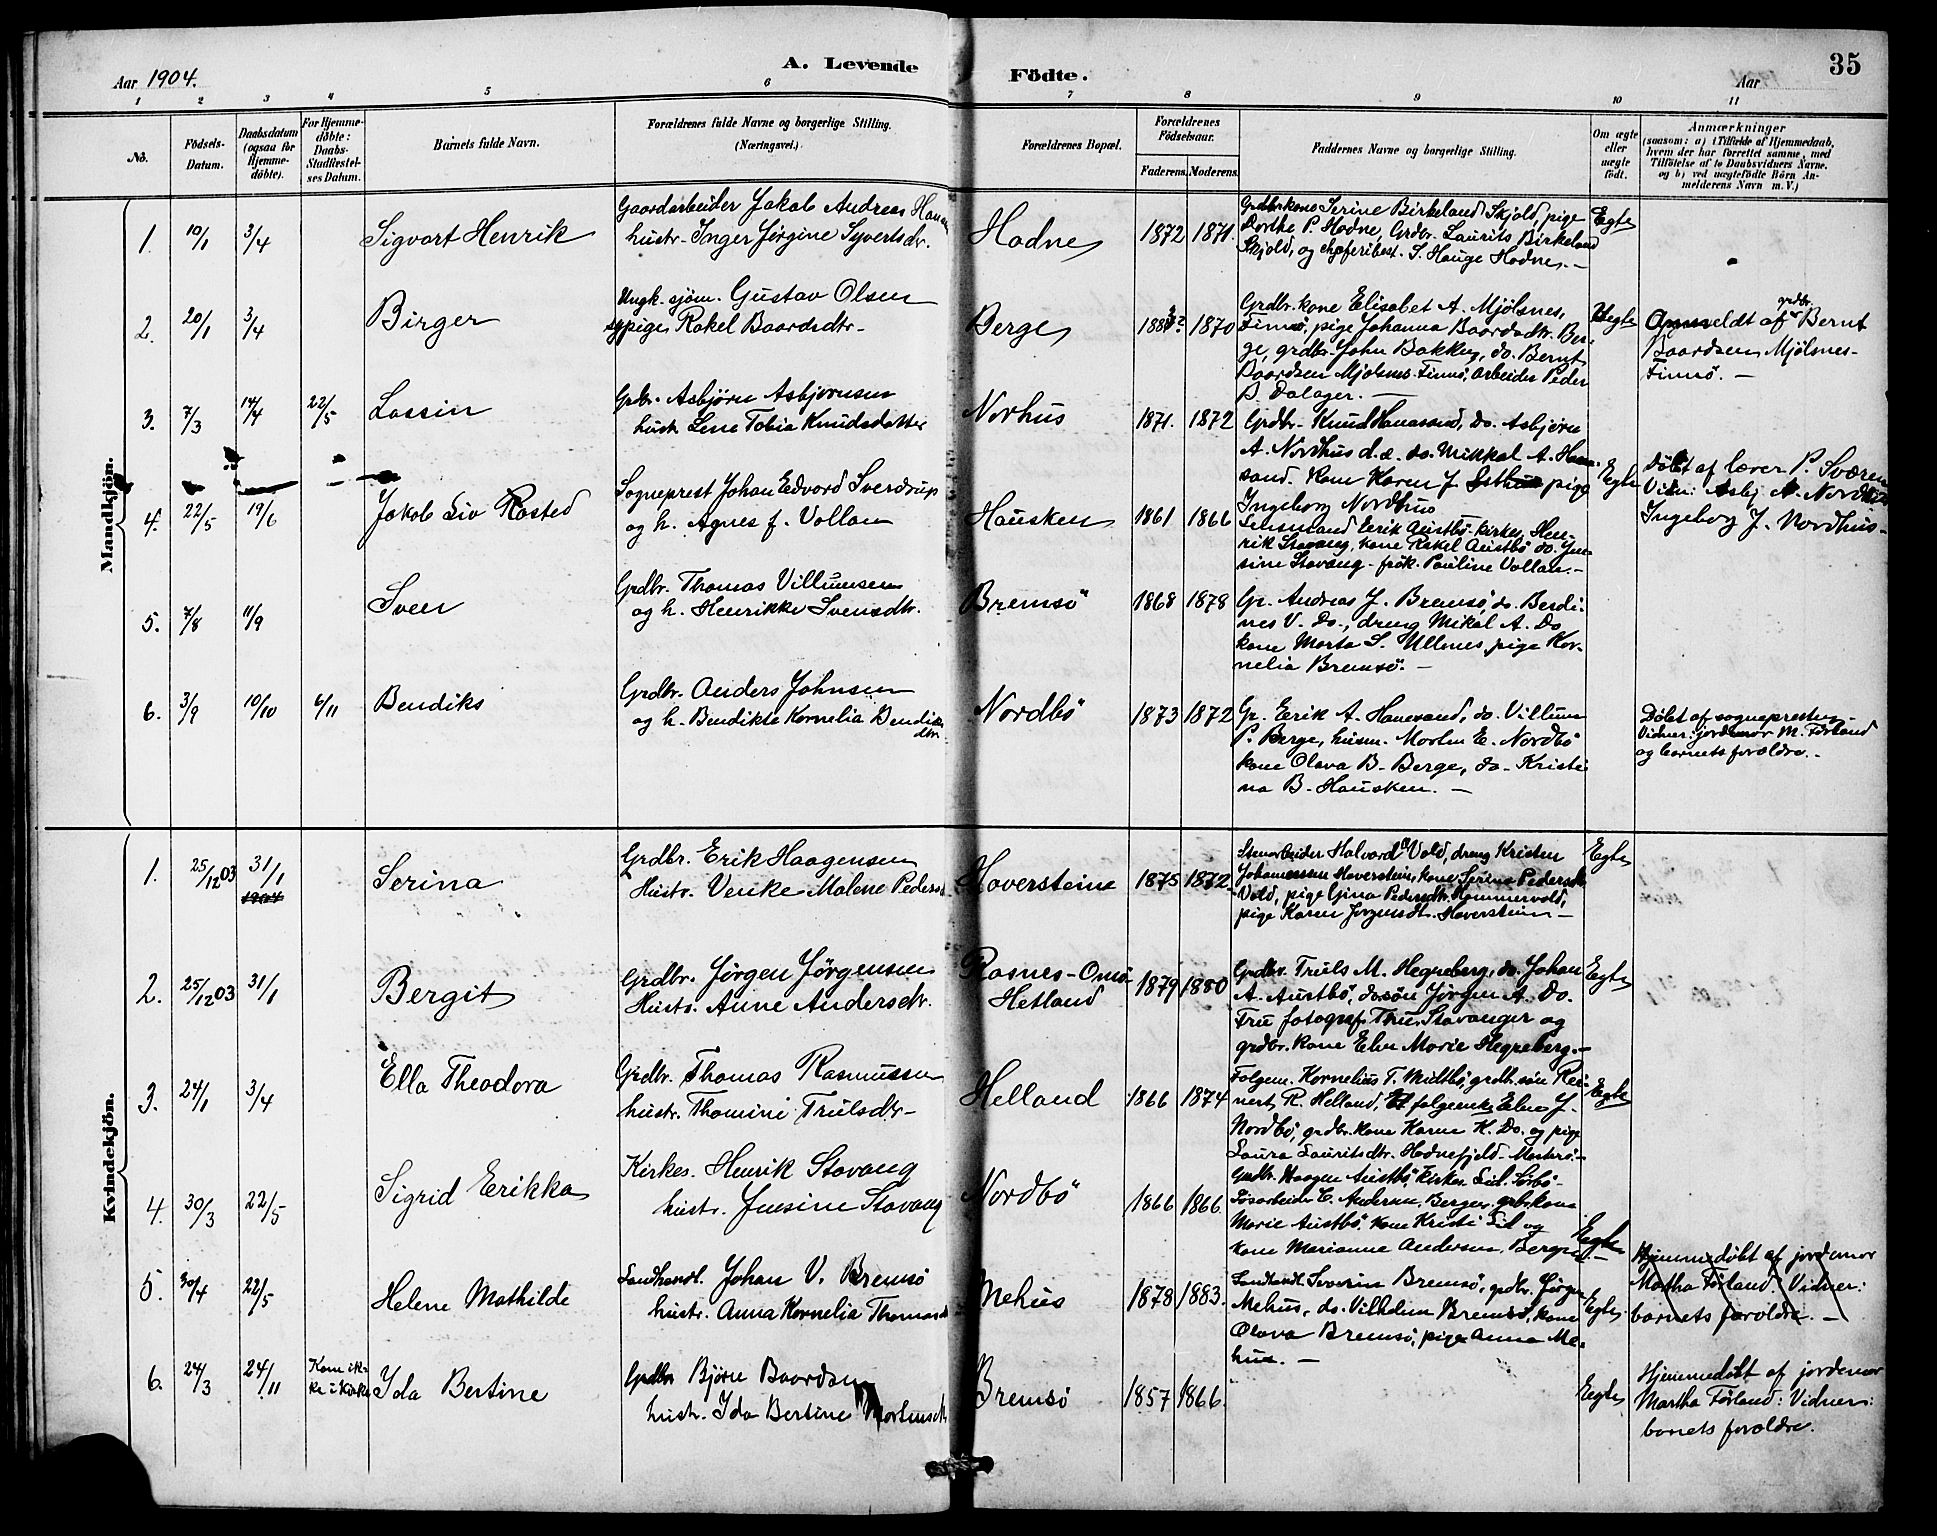 Aar 1904. A. Levende Födte. Aar 35
1 2 3 4 5 6 7 8 9 10 11
No.
Födsels-
Datum.
Daabsdatum
(ogsaa for
Hjemme-
döbte).
For Hjemme-
döbte:
Daabs-
Stadfæstel-
ses Datum.
Barnets fulde Navn.
Forældrenes fulde Navne og borgerlige Stilling.
(Næringsvei.)
Forældrenes Bopæl.
Forældrenes
Födselsaar.
Faderens. Moderens.
Faddernes Navne og borgerlige Stilling.
Om ægte
eller
uægte
født.
Anmærkninger
(saasom: a) i Tilfælde af Hjemmedaab,
hvem der har forrettet samme, med
Tilföielse af to Daabsvidners Navne.
og b) ved uægtefödte Börn An-
melderens Navn m.V.)
Mandkjön.
1. 10/1 3/4 Sigvart Henrik
Gaardarbeider Jakob Andreas
hustr. Inger Jørgine Syvertsdr.
Hodne 1872 1871.
Grdbr.kone Serine Birkeland Skjold, pige
Dorthe P. Hodne, Grdbr. Laurits Birkeland
Skjold, og S. Hauge Hodne. —
Egte
2. 20/1 3/4 Birger
Ungk. sjøm. Gustav Olsen
pige Rakel Baardsdtr.
Berge 1870
Grdbr. kone Elisabet A. Mjölsnes,
Finnö, pige Johanna Baardsdtr. Ber-
ge, grdbr. John Bakken, do. Bernt
Baardsen Mjölsnes Finnö, arbeider Peder
B. Dalager. —
Uegte
Anmeldt af grdbr. Bernt
Baardsen Mjölsnes-
Finnö. —
3. 7/3 14/4 22/5 Lassin
Grbr. Asbjørn Asbjørnsen
hustr. Lene Tobia Knudsdatter
Norhus 1871. 1872
Grdbr. Knud Hanasand, do. Asbjørn
A. Nordhus d.æ. do. Mikkal A. Hana-
sand. Kone Karen J. pige
Ingeborg Nordhus
Egte
Döbt af lærer P. Sværen
Vidn: Asbj. A. Nordhus
Ingeborg J. Nordhus.
4. 22/5 19/6 Jakob Liv Rosted
Sogneprest Johan Edvard Sverdrup
og h. Agnes f. Vollan
Hausken 1861 1866
Lensmand Eerik Austbö kirkes. Hen-
rik Stavang, kone Rakel Austbö do. Jen-
sine Stavang - frök. Pauline Vollan. —
5. 7/8 11/9 Sven
Grdbr. Thomas Villumsen
og h. Henrikke Svensdtr.
Bremsö 1868 1878
Gr. Andreas J. Bremsö, do. Berdi-
nes V. Do., dreng Mikal A. Do.
kone Marta S. Ullenes, pige Kor-
nelia Bremsö. —
6. 3/9 10/10 6/11 Bendiks
Grdbr. Anders Johnsen
og h. Bendikte Kornelia Bendiks
dtr.
Nordbö 1873 1872
Gr. Erik A. Hanesand, do. Villum
P. Berge, husm. Morten E. Nordbö
kone Olava B. Berge, do. Kristi-
na B. Hausken. —
Döbt af sognepresten.
Vidner: jordemor M. Førland
og barnets forældre. -
Kvindekjön.
1. 25/12 03 31/1 1904 Serina
Grdbr. Erik Haagensen
Hustr. Venke Malene Pedersd
Hoversteine 1875 1872.
Stenarbeider Halvard Vold, dreng Kristen
Johannessen Høverstein, kone Serine Pedersdtr
Vold, pige Gina Pedersdtr. Hommervold,
pige Karen Jørgensdt. Høverstein —
Egte
2. 25/12 03 31/1 Bergit
Grdbr. Jørgen Jørgensen
Hustr. Anne Andersdtr.
Rosnes-Omö
Hetland
1879 1880
Grdbr. Truls M. Hegreberg, do. Johan
A. Austbö, do. sön Jørgen A. Do.
Fru fotograf Stavanger og
grdbr. kone Elen Marie Hegreberg. —
Egte
3. 24/1 3/4 Ella Theodora
Grdbr. Thomas Rasmussen
hustr. Thomine Trulsdtr.
Helland 1866 1874
Folgem. Kornelius T. Midtbö, grdbr. sön Rei-
nert R. Helland, folgeenke Elen J.
Nordbö, grdbr. kone Karen K. Do. og pige
Laura Lauritsdtr. Hodnefjeld-Mosterö. —
Egte
4. 30/3 22/5 Sigrid Erikka
Kirkes. Henrik Stavang
hustr. Jensine Stavang
Nordbö 1866 1866
Grdbr. Haagen Austbö, Kirkes. Lil. Sörbö-
E. Andersen, Berge, grbr. kone
Marie Austbö, kone Kristi Lil og
kone Marianne Andersen, Berge. —
Egte
5. 30/4 22/5 Helene Mathilde
Landhandl. Johan V. Bremsö
hustr. Anna Kornelia Thomasd
Mehus 1878 1883.
Landhandl. Severin Bremsö, grdbr. Jørgen
Mehus, do. Vilhelm Bremsö, kone
Olava Bremsö, pige Anna Me-
hus. —
Egte
Hjemmedöbt af jordemor
Martha Førland: Vidner:
barnets forældre. —
6. 24/3 24/11 Kom ik-
ke i kirke Ida Bertine
Grdbr Bjørn Baardsen
hustr. Ida Bertine Mortensdt
Bremsö 1857 1866.
Egte
Hjemmedöbt af jordemor
Martha Førland: Vidner:
barnets forældre.